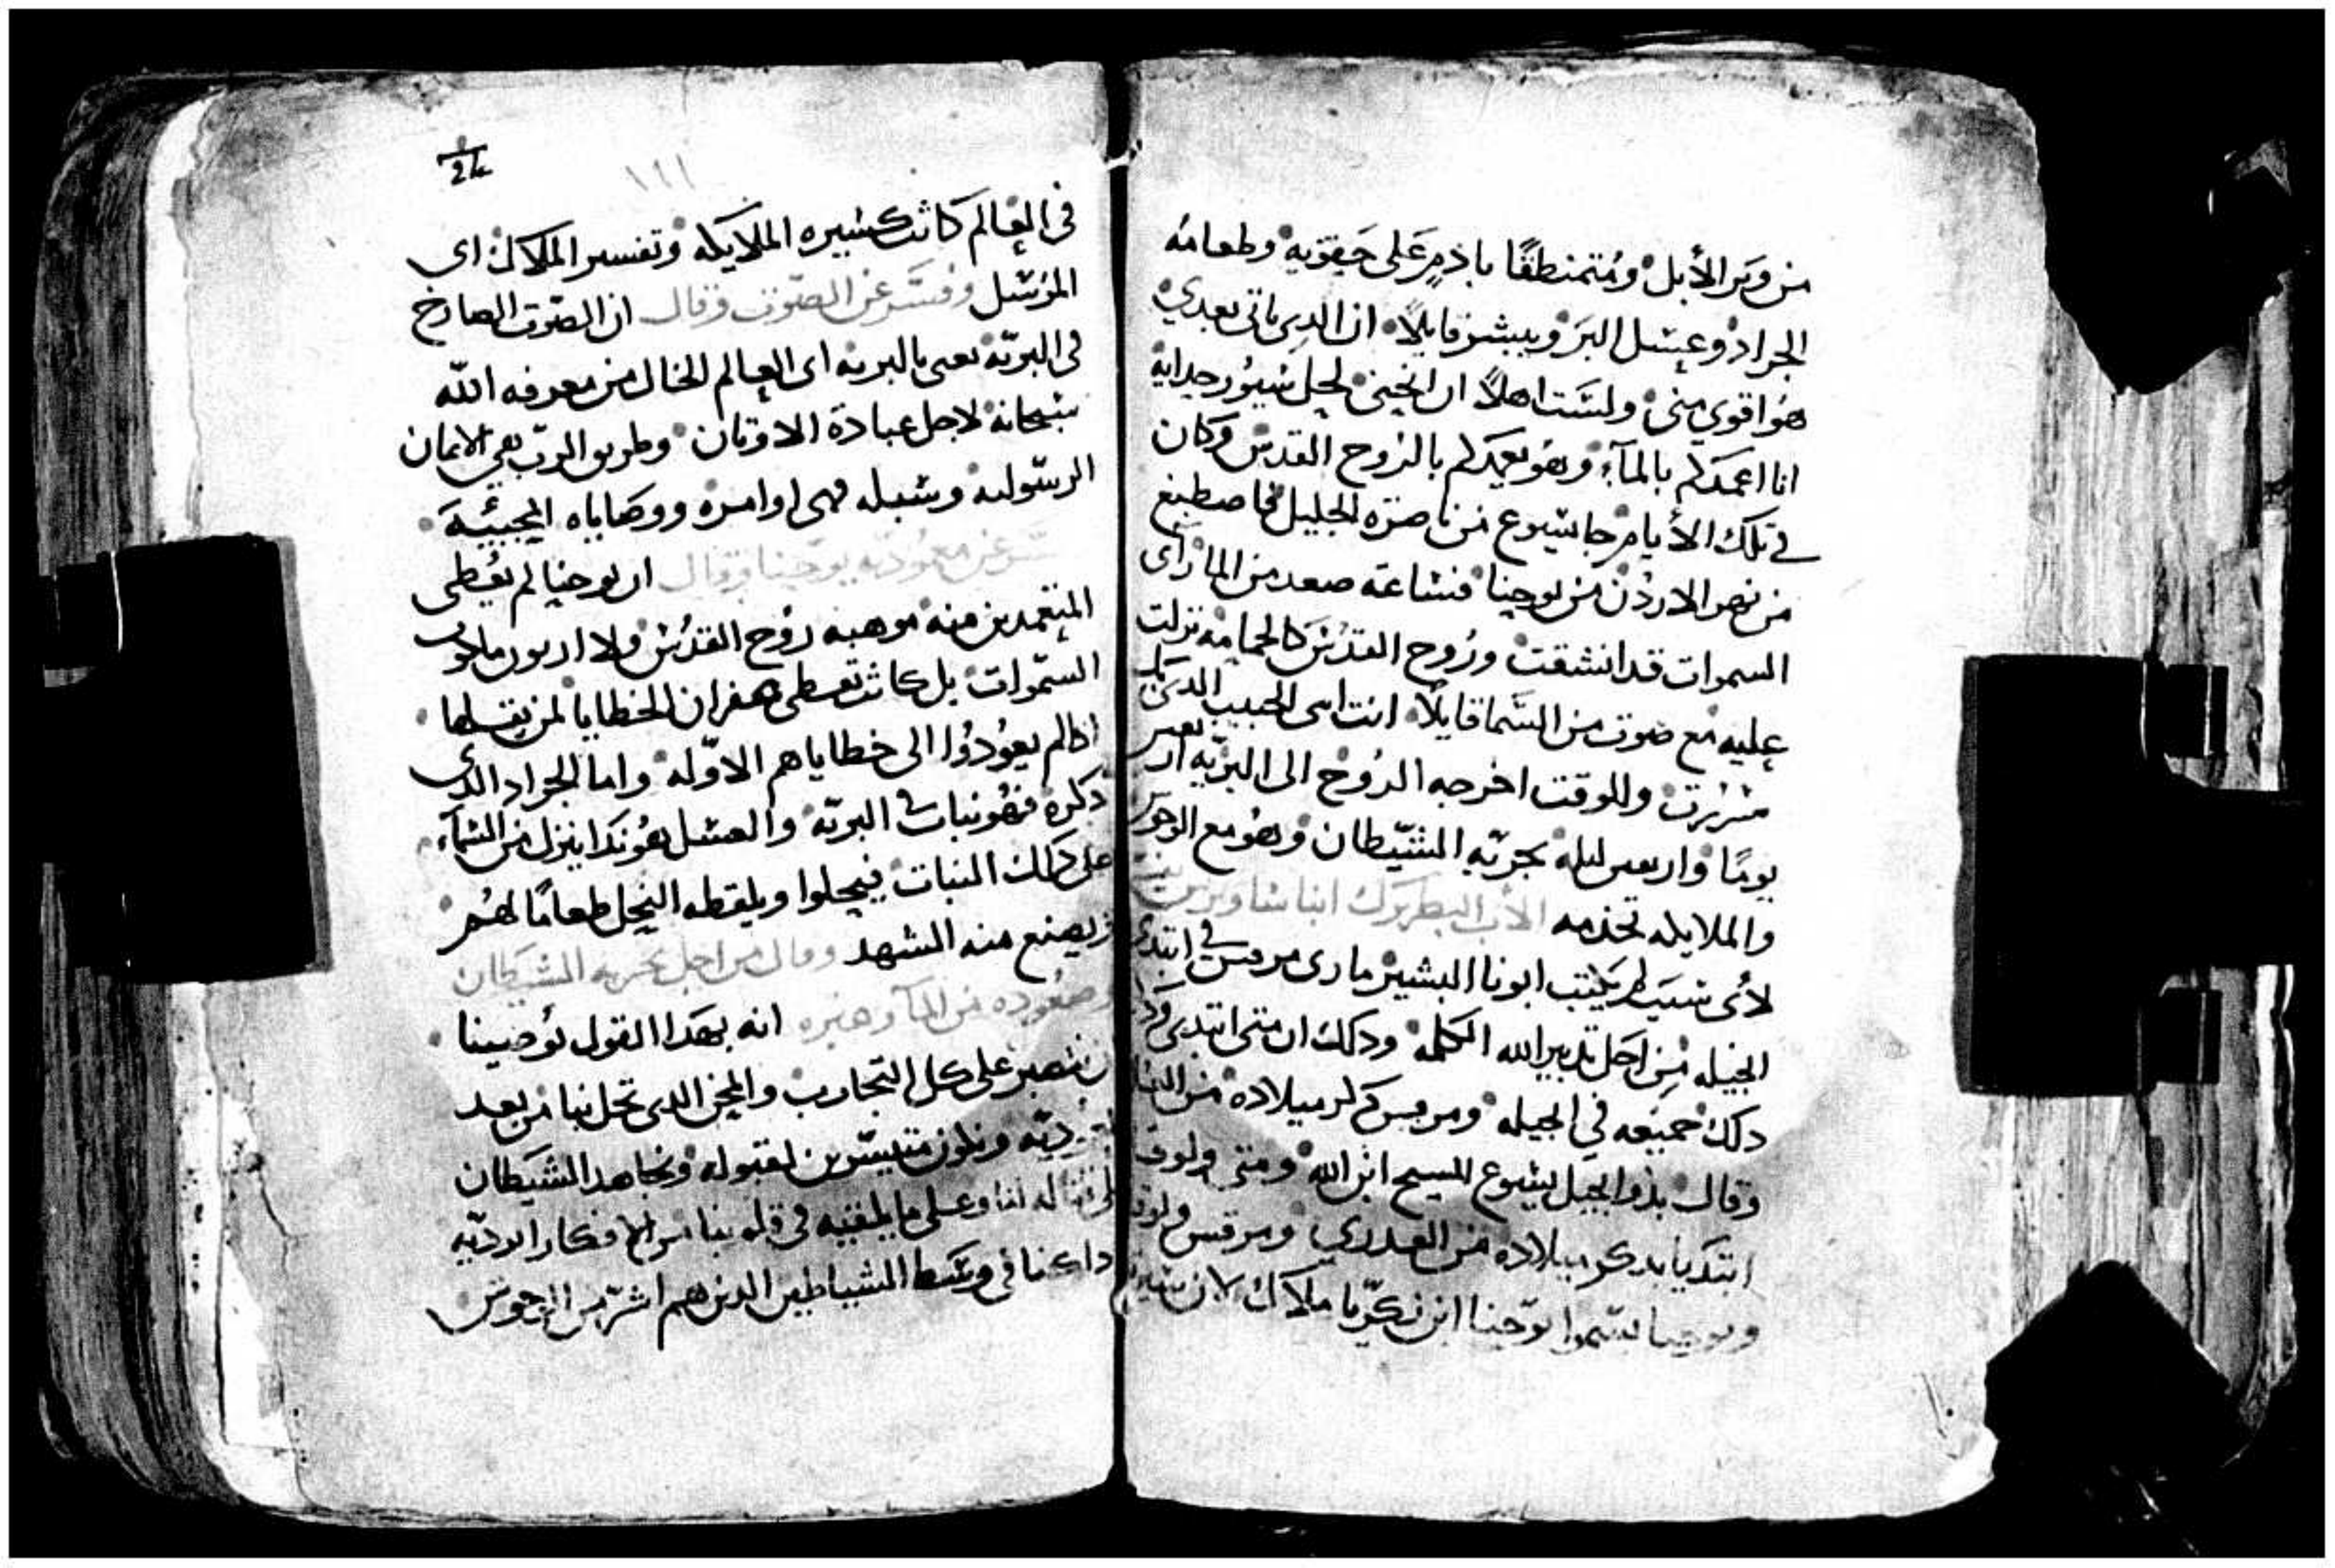 من وبر الأبل ومُتمنطقًا باذمٍ عَلى حَقوَيه وطعامه
الجراد وعسَل البَر ويبشر قايلًا ان الدِى ياتى بعدي
هوَ اقوي مِنى ولسَت اهلًا ان انحنى لحل سُيوُر حداية
انا اعمدَكم بالمآء وهو يعمدكم بالرُوح القدسَ وكان
في تلك الأيام جا يسَوع مَن ناصرَه الجليل فاصطبغ
من نهر الاردُن مَن يوحنِا فسَاعته صعد مَن الما راى
السموات قد انشقت ورُوح القدُسَ كالحمامه نزلت
عليه مع صَوت من السَما قايلًا انت ابنى الحبيب الدى بك
سُررت وللوقت اخرجه الرُوح الى البريّه اربعين
يومًا واربعين ليله يجربّه الشَيّطان وهُو مع الوحوش
والملايكه تخدمه الأب البطريَرك انبا ساويرس
لأى سَبَب لم يكتب ابونا البشير مارى مرقس في ابتدى
انجيله مَن اجل تدبير الله الكلمه ودلك ان متى ابتدى وذكر
دلك جميعه في انجيله ومرقس ذكر ميلاده من
وقال بدو انجيل يسوع المسيح ابن الله ومتى ولوقا
ابتديا بدكر ميلاده من العدرى ومرقس ولوقا
ويوحنا يسَموا يوَحنا ابن زكريّا ملاك لان سَيرته
24
١٦١
فى العِالم كانت كسَيره الملايكه وتفسير الملاك اى
المرُسَل وفسَر عن الصَوت وقال ان الصَوت الصارخ
فى البريّه يعنى بالبريه اى العِالم الخال من معرفه الله
سَبحانه لاجل عبادة الاوتان وطريق الربّ هي الايمان
الرسَوليه وسَبله فهى اوامره ووصاياه المحييَه
عن معَمُوديّه يوَحنا وقال ان يوحنا لم يعُطى
المتعمدين منه موهبه رُوح القدُسَ ولا اربون ملكوت
السمَوات بل كانت تعطى غفران الخطايا لمن يقبلها
ادا لم يعوُدوُا الى خطاياهم الاوّله واما الجراد الدى
دكره فهُو نبات في البريّه والعسَل هُو ندا ينزل من السمآء
على دلك النبات فيحلوا ويلقطه النحِل طعامًا لهُم
ويصنع منه الشهد وقال من اجل تجربه الشيَطان
وصُعوده من المآ وغيره انه بهَدا القول يوُصينا
ان نصبر على كل التجارب والمِحن الدى تحل بنا من بعد
المعموديّه ونكون متيسّرين لقبوله ونجاهد الشيَطان
على قتاله لنا وعلى ما يلقيه فى قلوبنا من الافكار الرديّه
ادا كنا فى وسَط الشياطين الدين هم اشر من الوحوش